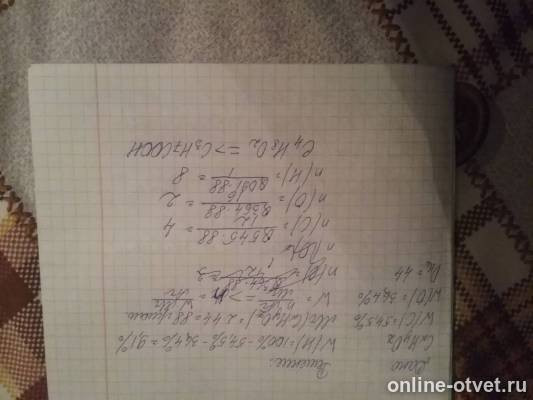 Дано:
CxHyOz
W(C)=54,5%
W(O)=36,4%
DH2=44
Решение:
W(H)=100%-54,5%-36,4%=9,1%
Mr(CxHyOz)=2·44=88
W= n·Ar/Mr => n= W·Mr/Ar
n(C)= 0,545·88/12 = 4
n(O)= 0,364·88/16 = 2
n(H)= 0,091·88/1 = 8
C4H8O2 => C3H7COOH
online-otvet.ru